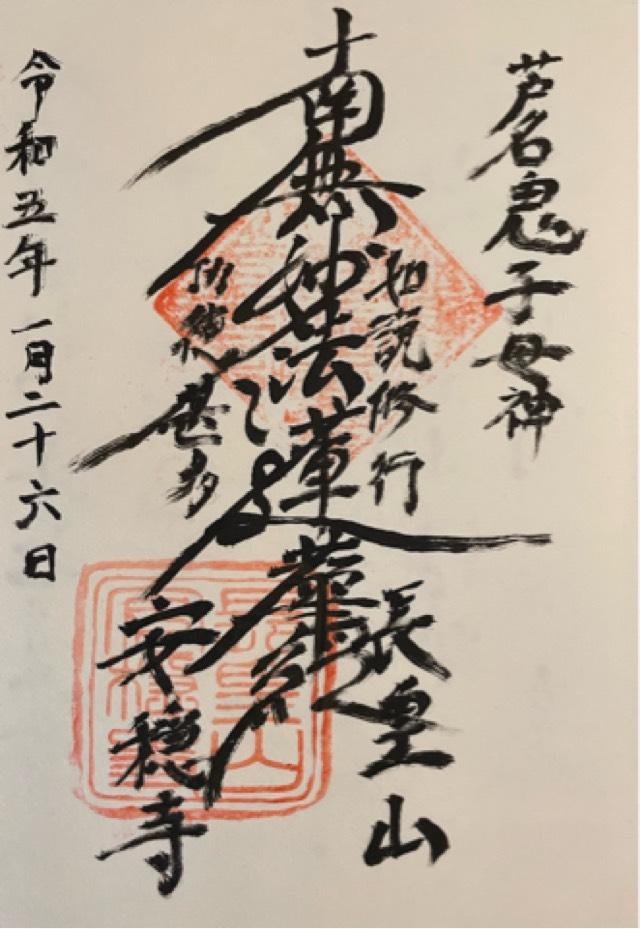 芦名鬼子母神
如説修行
南無妙法蓮華経
所得
甚多
長皇山
安穏寺
令和五年一月二十六日